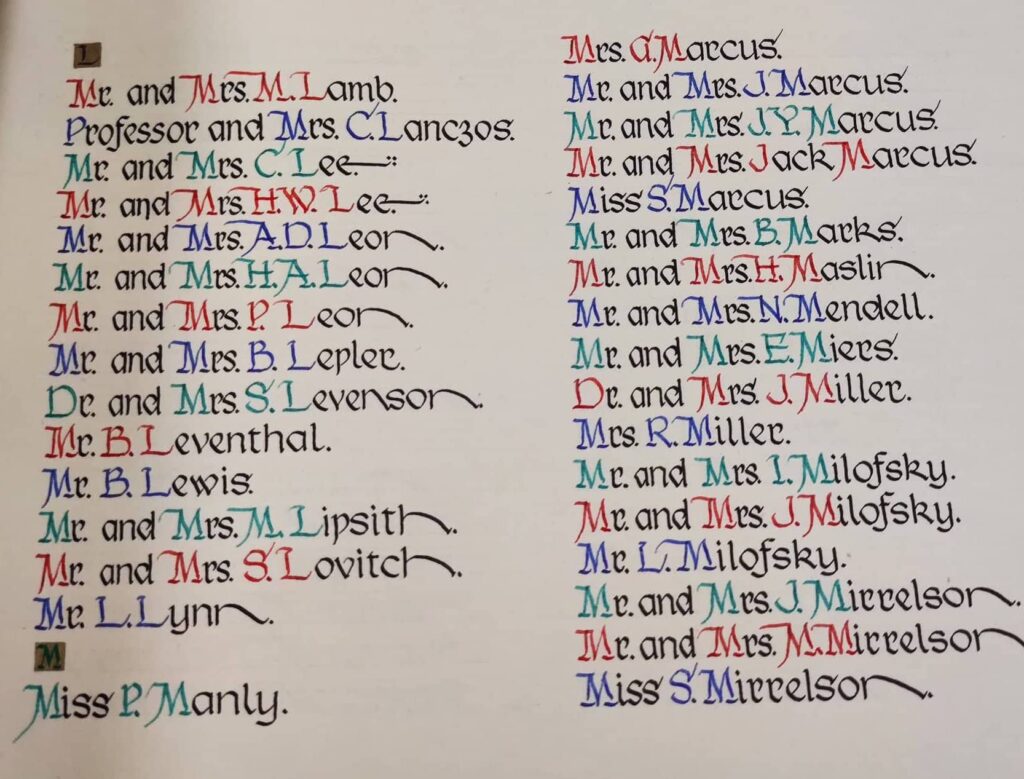 L
Mr. and Mrs. M. Lamb.
Professor and Mrs. C. Lanczos.
Mr. and Mrs. C. Lee.
Mr. and Mrs. H.W. Lee.
Mr. and Mrs. A.D. Leon.
Mr. and Mrs. H.A. Leon.
Mr. and Mrs. P. Leon.
Mr. and Mrs. B. Lepler.
Dr. and Mrs. S. Levenson.
Mr. B. Leventhal.
Mr. B. Lewis.
Mr. and Mrs. M. Lipsith.
Mr. and Mrs. S. Lovitch.
Mr. L. Lynn.
M
Miss P. Manly.
Mrs. G. Marcus.
Mr. and Mrs. J. Marcus.
Mr. and Mrs. J.Y. Marcus.
Mr. and Mrs. Jack Marcus.
Miss S. Marcus.
Mr. and Mrs. B. Marks.
Mr. and Mrs. H. Maslin.
Mr. and Mrs. N. Mendell.
Mr. and Mrs. E. Miers.
Dr. and Mrs. J. Miller.
Mrs. R. Miller.
Mr. and Mrs. I. Milofsky.
Mr. and Mrs. J. Milofsky.
Mr. L. Milofsky.
Mr. and Mrs. J. Mirrelson.
Mr. and Mrs. M. Mirrelson
Miss S. Mirrelson.